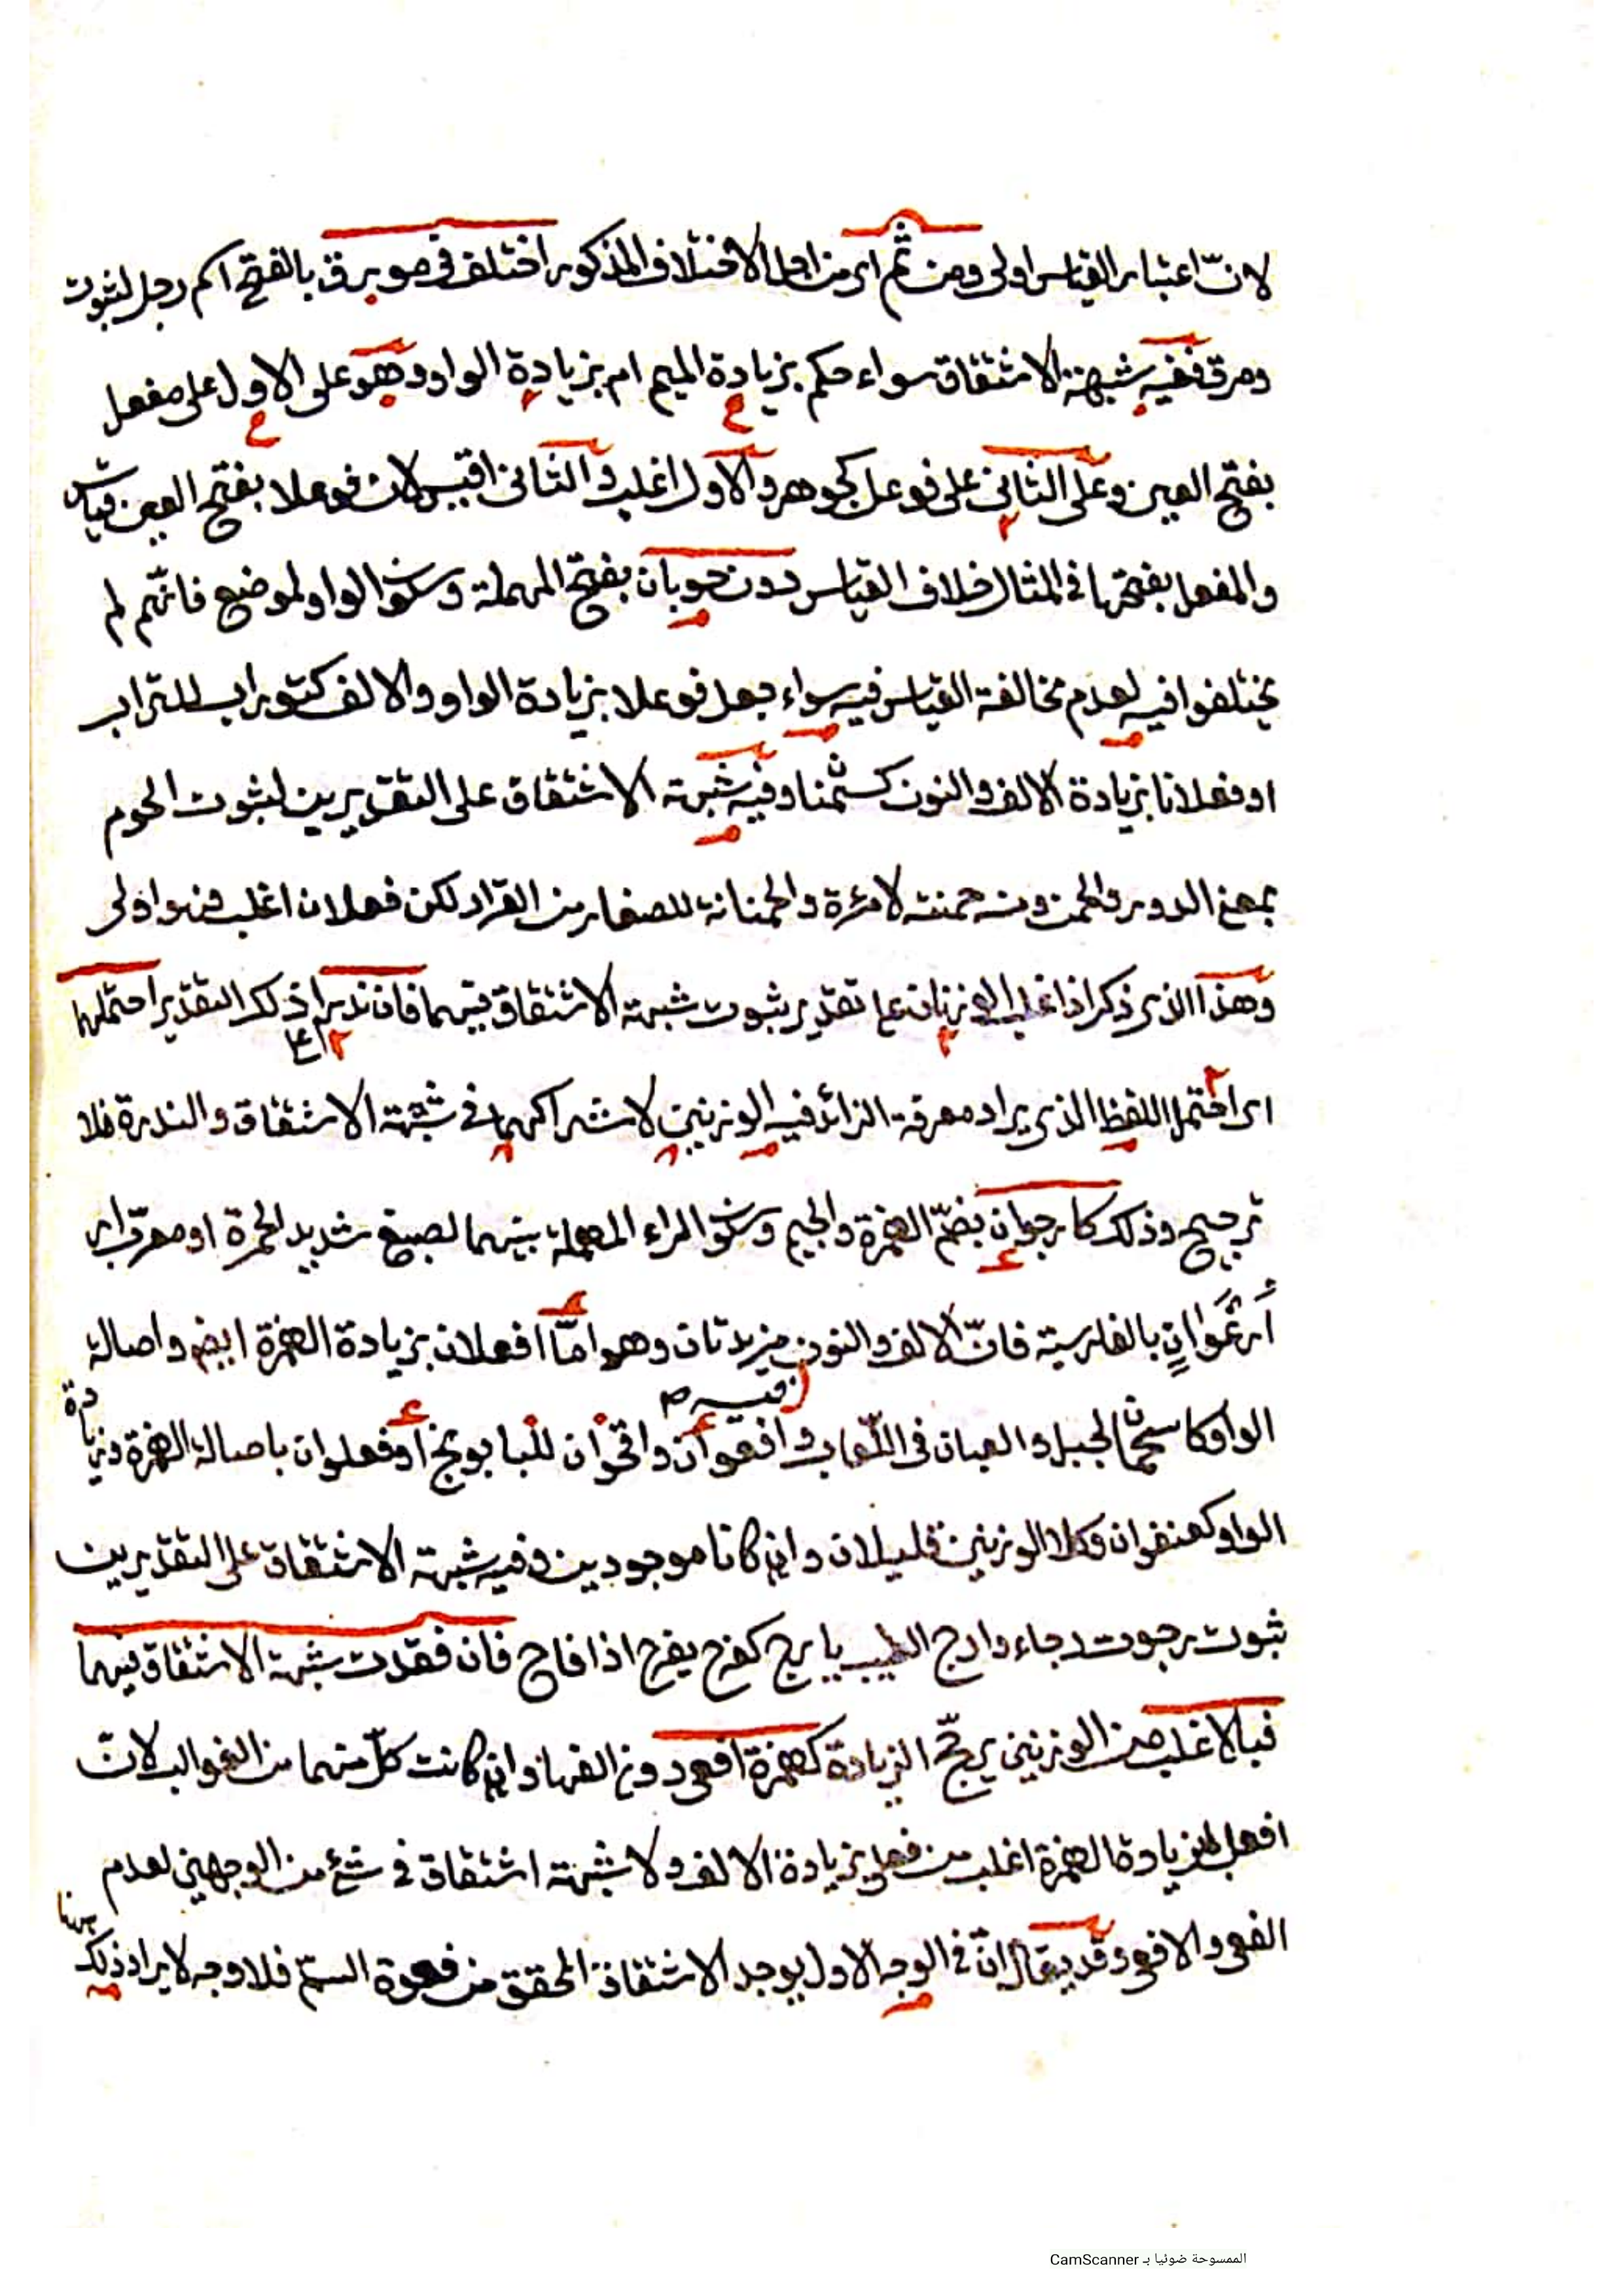 لانّ اعتبار القياس اولى ومن ثم اى من اجل الاختلاف المذكور اختلف فى مورق بالفتح اسم رجل لثبوت
ومرق ففيه شبهة الاشتقاق سواء حكم بزيادة الميم ام بزيادة الواو وهو على الاول على مفعل
بفتح العين وعلى الثانى على فوعل كجوهر والاول اغلب والثانى اقيس لان فوعلا بفتح العين قياس
والمفعل بفتحها فى المثال خلاف القياس دون حومان بفتح المهملة وسكون الواو لموضع فانّهم لم
يختلفوا فيه لعدم مخالفة القياس فيه سواء جعل فوعلا بزيادة الواو والالف كتوراب للتراب
او فعلانا بزيادة الالف والنون كسمنان وفيه شبهة الاشتقاق على التقديرين لثبوت الحوم
بمعنى الدور والحمن ومنه حمنة لامرءة والحمنانة للصغار من القراد لكن فعلان اغلب فهو اولى
وهذا الذى ذكر اذا غلب الوزنان على تقدير ثبوت شبهة الاشتقاق فيهما فان ندرا ذلك التقدير احتملهما
اى احتمل اللفظ الذى يراد معرفة الزائد فيه الوزنين لاشتراكهما فى شبهة الاشتقاق والندرة فلا
ترجيح وذلك كارجوان بضمّ الهمزة والجيم وسكون الراء المهملة بينهما لصبغ شديد الحمرة او معرّب
أرغوان بالفارسية فانّ الالف والنون مزيدتان وهو امّا افعلان بزيادة الهمزة ايضم واصالة
الواو كاسحمان لجبل والعبان فى اللّعاب وافعوان واقحوان للبابونج او فعلوان باصالة الهمزة وزيادة
الواو كعنفوان وكلا الوزنين قليلان وان كانا موجودين وفيه شبهة الاشتقاق على التقديرين
ثبوت رجوت رجاء وارج الطيب يارج كفرح يفرح اذا فاح فان فقدت شبهة الاشتقاق فيهما
فبالاغلب من الوزنين يرجّح الزيادة كهمزة افعى دون الفها وان كانت كلّ منهما من الغوالب لانّ
افعل بزيادة الهمزة اغلب من فعلى بزيادة الالف ولا شبهة اشتقاق فى شئ من الوجهين لعدم
الفعى والافع وقد يقال انّ فى الوجه الاول يوجد الاشتقاق المحقق من فعوة السمّ فلا وجه لايراد ذلك هنا
الممسوحة ضوئيا بـ CamScanner